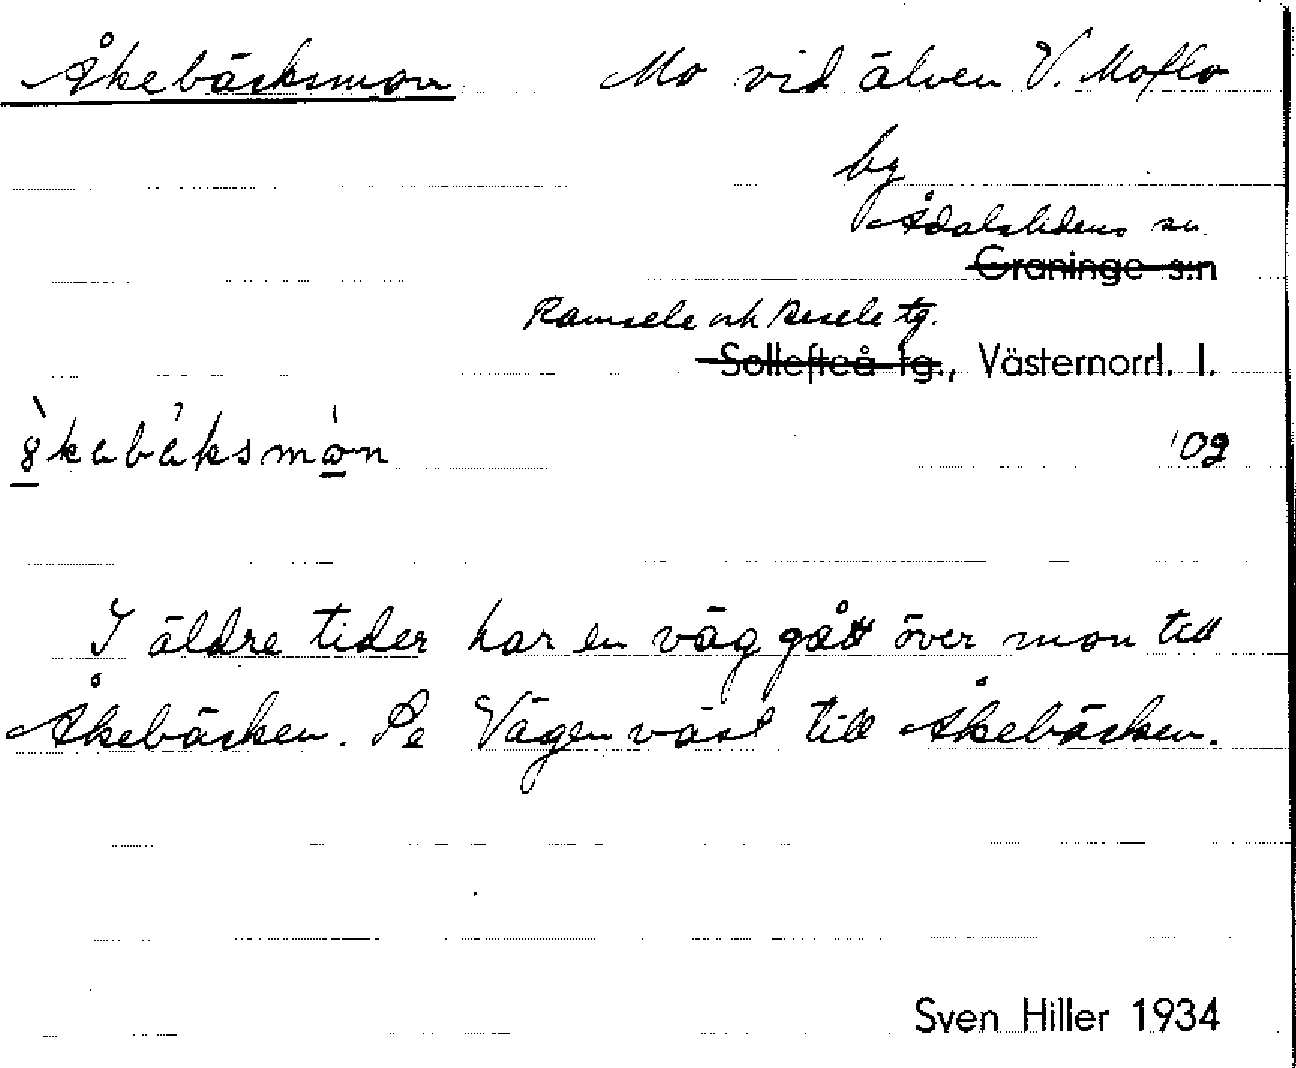 Åkebäcksmon Mo vid älven V. Moflo
by
Ådalslidens sn
Graninge s:n
Ramsele och Resele tg.
Sollefteå tg., Västernorrl. l.
'09
I äldre tider har en väg gått över mon till
Åkebäcken. Se Vägen väst till Åkebäcken.
Sven Hiller 1934